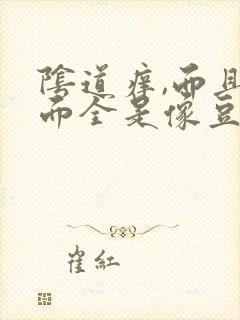 陰道痒,而且
而全是像豆
崔紅